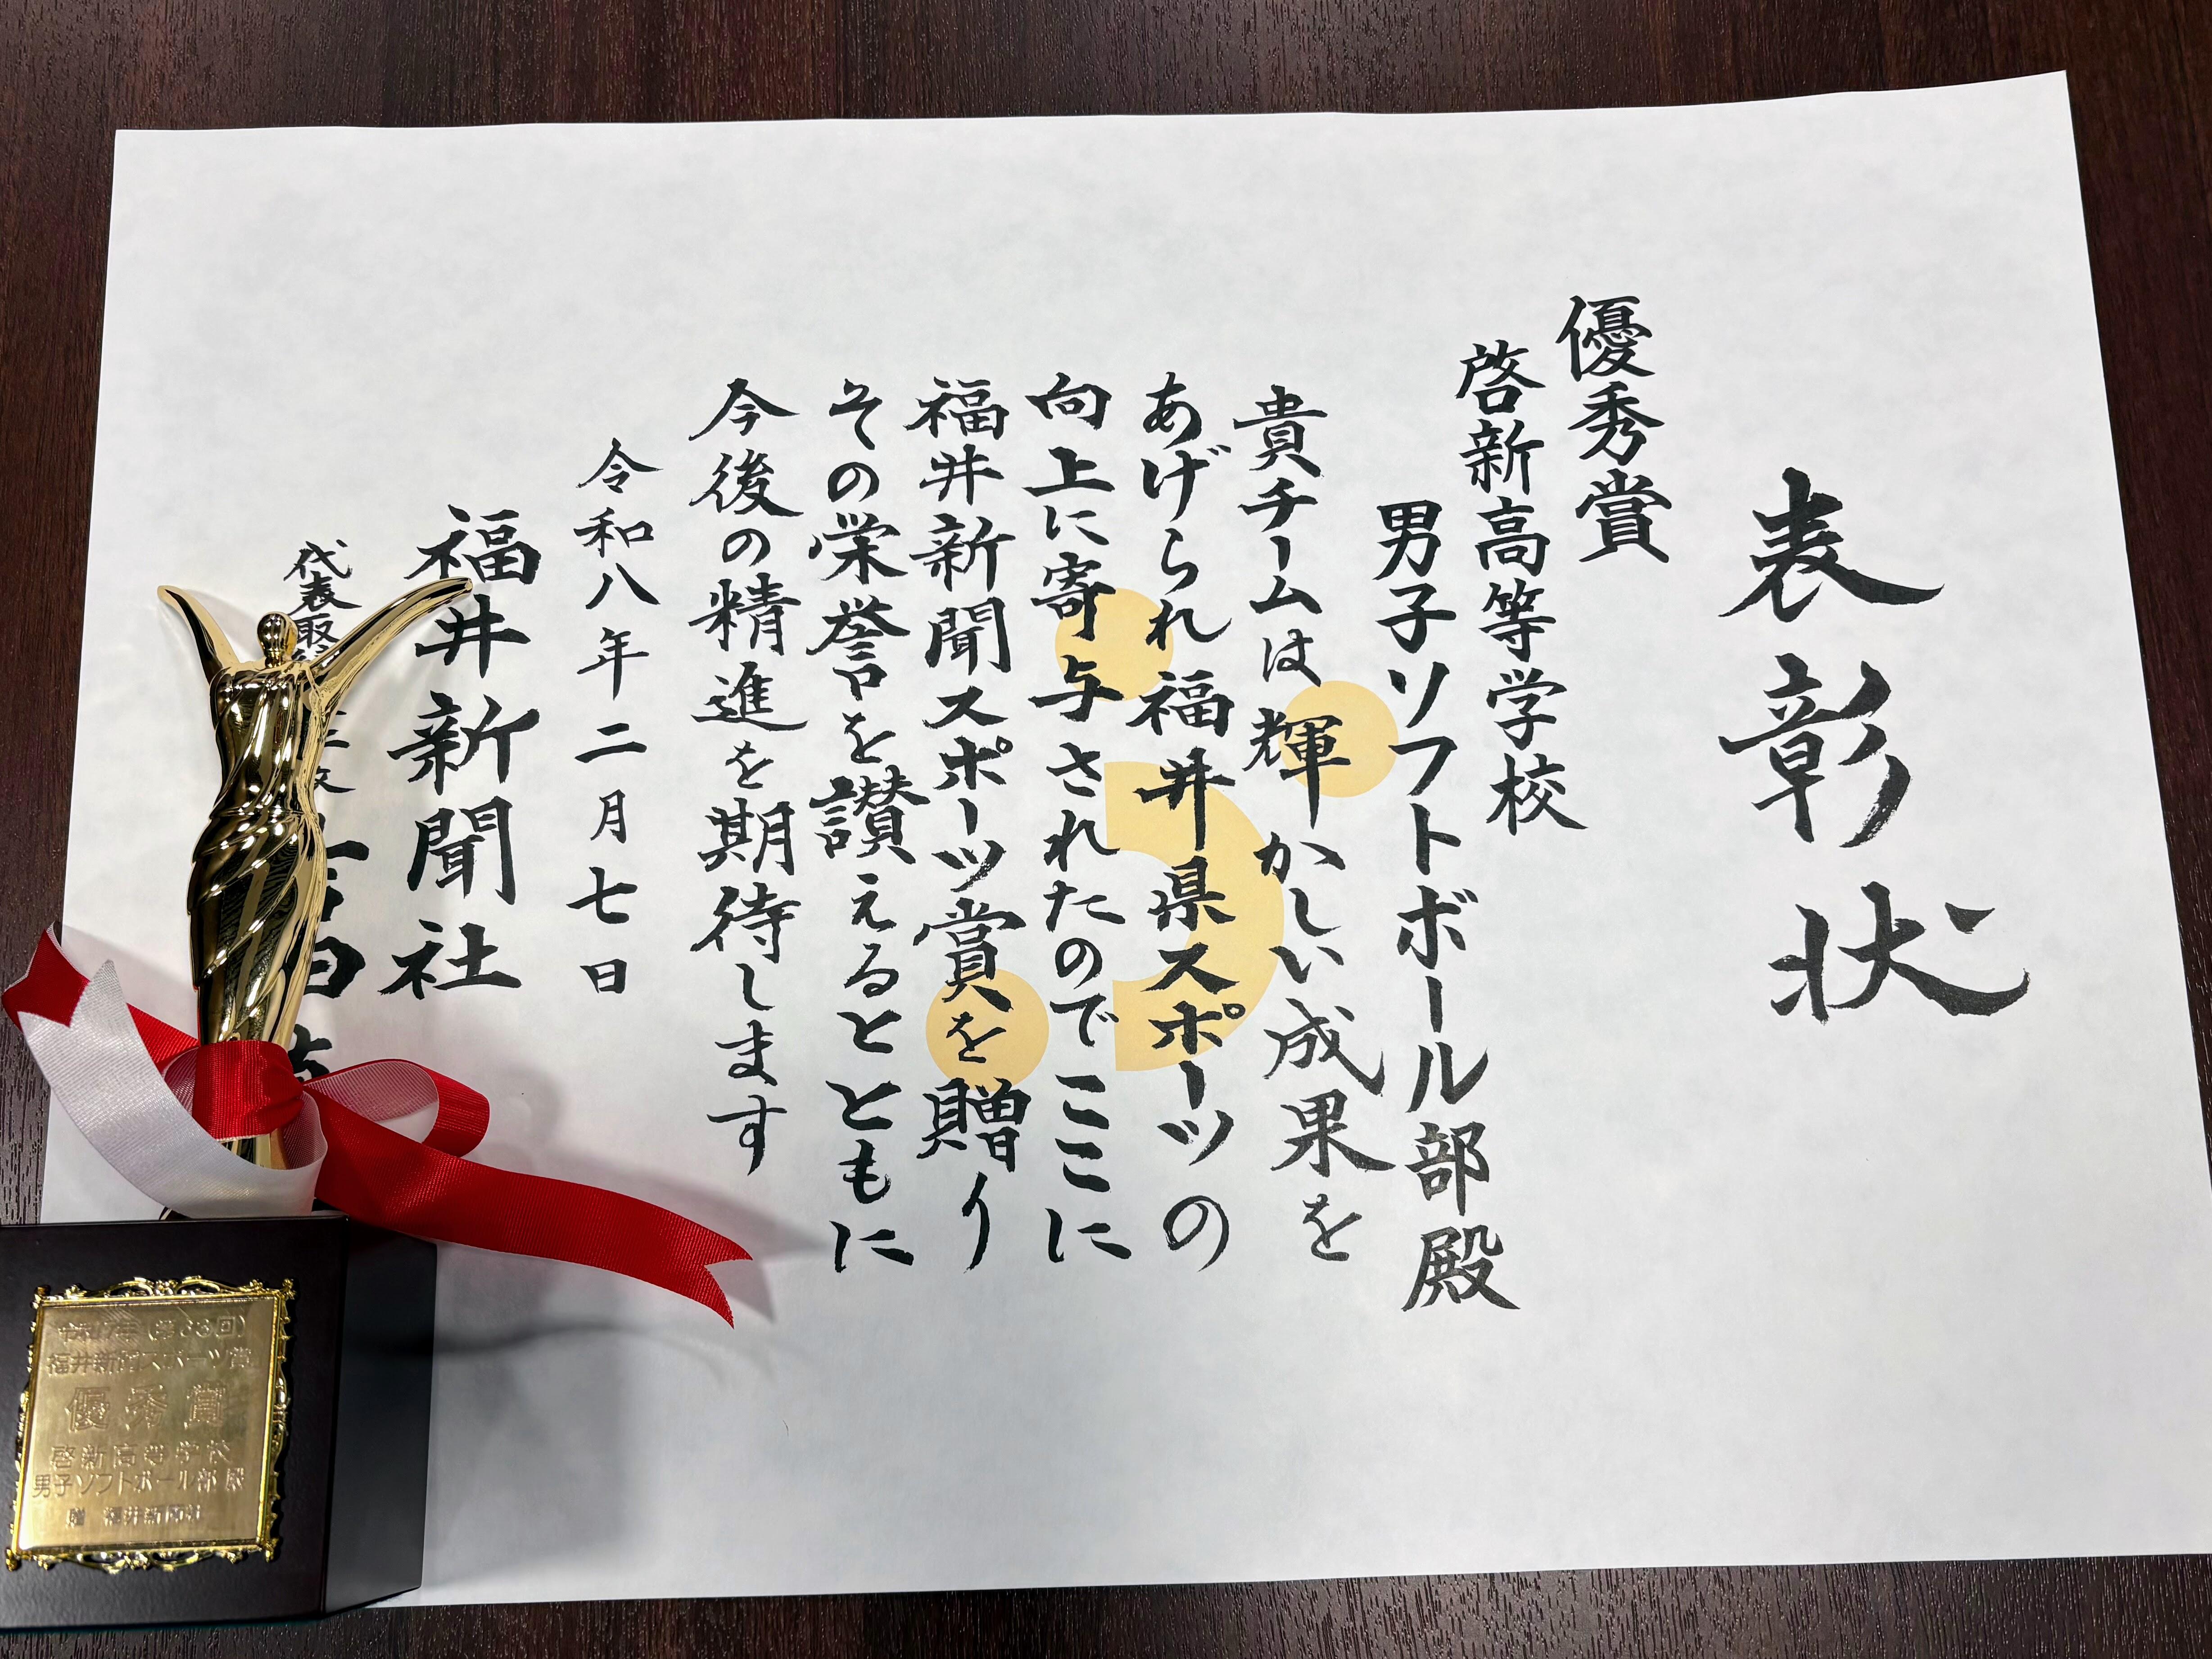 表彰状
優秀賞
啓新高等学校
男子ソフトボール部殿
貴チームは輝かしい成果を
あげられ福井県スポーツの
向上に寄与されたのでここに
福井新聞スポーツ賞を贈り
その栄誉を讃えるとともに
今後の精進を期待します
令和八年二月七日
福井新聞社
代表取
福井新聞スポーツ賞
優秀賞
啓新高等学校
男子ソフトボール部殿
贈 福井新聞社